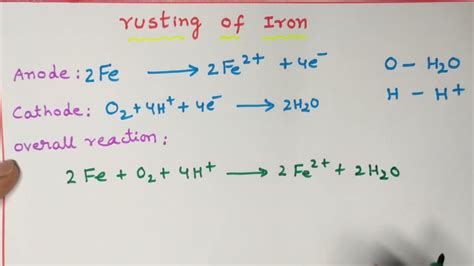 rusting of Iron
Anode: 2Fe ⟶ 2Fe²⁺ + 4e⁻
O – H₂O
Cathode: O₂ + 4H⁺ + 4e⁻ ⟶ 2H₂O
H – H⁺
overall reaction:
2Fe + O₂ + 4H⁺ ⟶ 2Fe²⁺ + 2H₂O